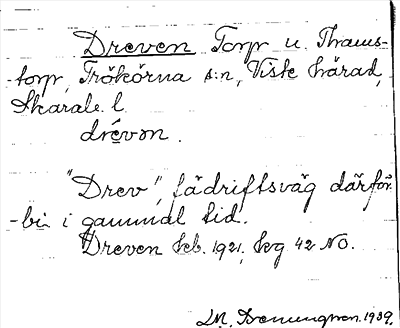 Dreven Torp u. Thams-
-torp, Trökörna s:n, Viste härad,
Skarab. l.
drévən.
"Drev", fädriftsväg därför-
-bi i gammal tid.
Dreven hcb. 1921, seg 42 NO.
1939.